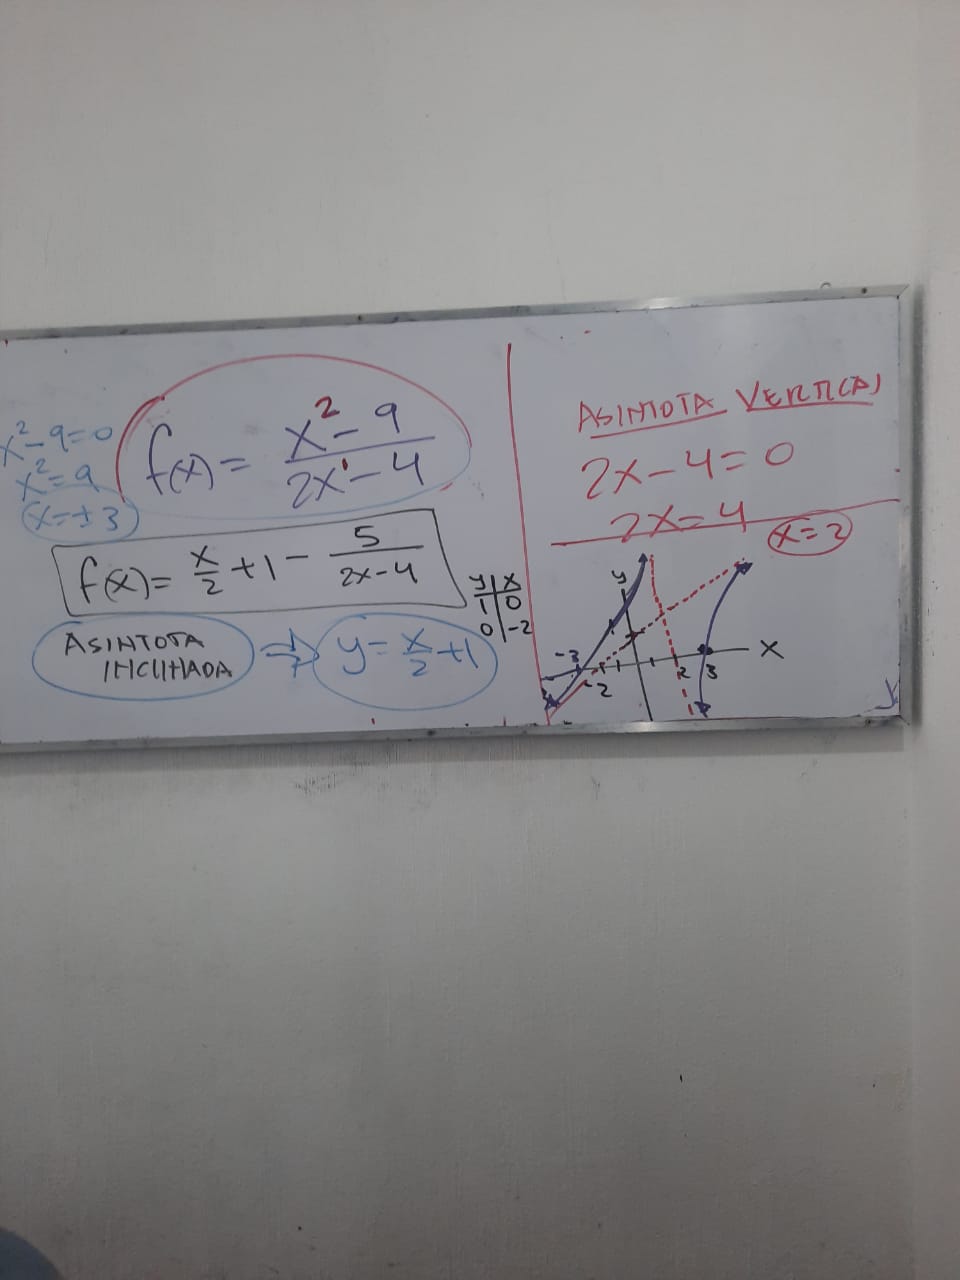 x²-9=0
x²=9
x=±3
f(x)= x²-9 / 2x¹-4
f(x)= x/2 +1 - 5/2x-4
ASINTOTA
INCLINADA ⇒ y= x/2 +1
y | x
1 | 0
0 | -2
ASINTOTA VERTICAL
2x-4=0
2x=4
x=2
y
x
-3
-2
2
3